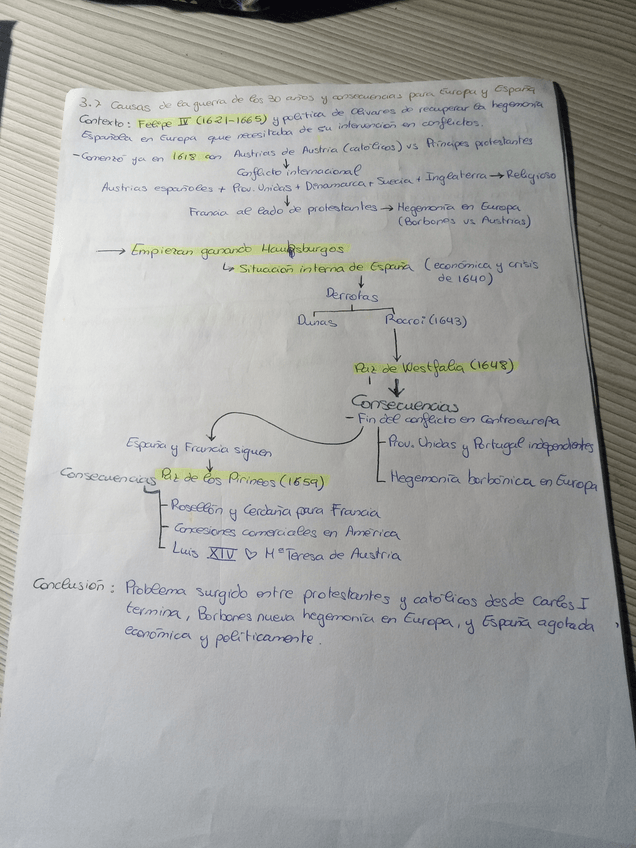 3.7 Causas de la guerra de los 30 años y consecuencias para Europa y España
Contexto: Felipe IV (1621-1665) y política de Olivares de recuperar la hegemonía
Española en Europa que necesitaba de su intervención en conflictos.
- Comenzó ya en 1618 con Austrias de Austria (católicos) vs Príncipes protestantes
↓
Conflicto internacional
Austrias españoles + Prov. Unidas + Dinamarca + Suecia + Inglaterra → Religioso
↓
Francia al lado de protestantes → Hegemonía en Europa
(Borbones vs Austrias)
→ Empiezan ganando Habsburgos
↳ Situación interna de España (económica y crisis
de 1640)
↓
Derrotas
Dunas Rocroi (1643)
↓
Paz de Westfalia (1648)
↓
Consecuencias
- Fin del conflicto en Centroeuropa
España y Francia siguen
- Prov. Unidas y Portugal independientes
↓
Consecuencias Paz de los Pirineos (1659)
Hegemonía borbónica en Europa
- Rosellón y Cerdaña para Francia
- Concesiones comerciales en América
- Luis XIV ♡ Mª Teresa de Austria
Conclusión: Problema surgido entre protestantes y católicos desde Carlos I
termina, Borbones nueva hegemonía en Europa, y España agotada
económica y políticamente.